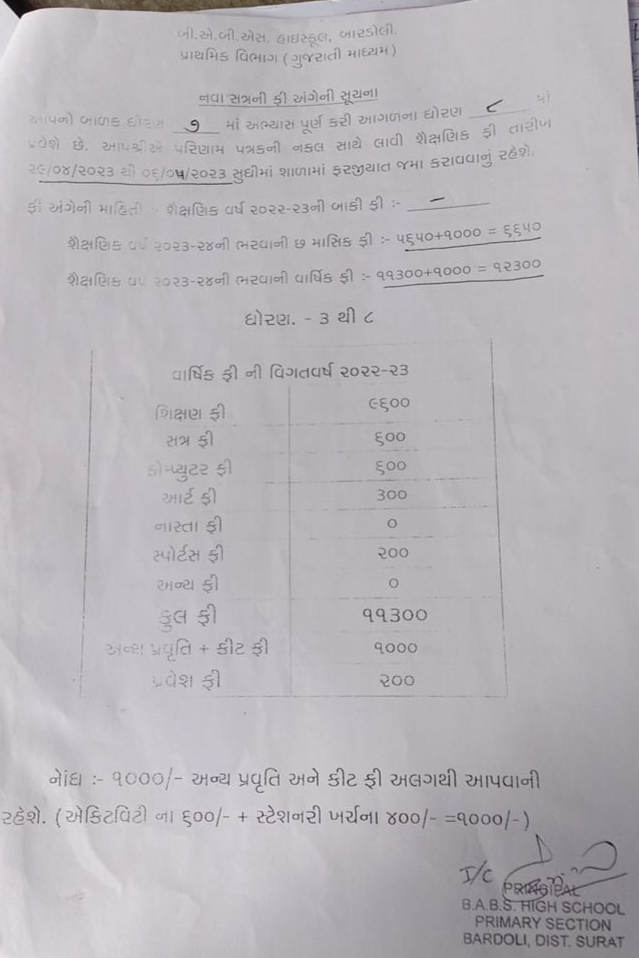 બી.એ.બી.એસ. હાઇસ્કૂલ, બારડોલી.
પ્રાથમિક વિભાગ (ગુજરાતી માધ્યમ)
નવા સત્રની ફી અંગેની સૂચના
આપનો બાળક ધોરણ ૭ માં અભ્યાસ પૂર્ણ કરી આગળના ધોરણ ૮ માં
પ્રવેશે છે. આપશ્રીએ પરિણામ પત્રકની નકલ સાથે લાવી શૈક્ષણિક ફી તારીખ
૨૯/૦૪/૨૦૨૩ થી ૦૬/૦૫/૨૦૨૩ સુધીમાં શાળામાં ફરજીયાત જમા કરાવવાનું રહેશે.
ફી અંગેની માહિતી :- શૈક્ષણિક વર્ષ ૨૦૨૨-૨૩ની બાકી ફી :- —
શૈક્ષણિક વર્ષ ૨૦૨૩-૨૪ની ભરવાની છ માસિક ફી :- ૫૬૫૦+૧૦૦૦ = ૬૬૫૦
શૈક્ષણિક વર્ષ ૨૦૨૩-૨૪ની ભરવાની વાર્ષિક ફી :- ૧૧૩૦૦+૧૦૦૦ = ૧૨૩૦૦
ધોરણ. - ૩ થી ૮
વાર્ષિક ફી ની વિગતવર્ષ ૨૦૨૨-૨૩
શિક્ષણ ફી ૯૬૦૦
સત્ર ફી ૬૦૦
કોમ્પ્યુટર ફી ૬૦૦
આર્ટ ફી ૩૦૦
નાસ્તા ફી ૦
સ્પોર્ટસ ફી ૨૦૦
અન્ય ફી ૦
કુલ ફી ૧૧૩૦૦
અન્ય પ્રવૃતિ + કીટ ફી ૧૦૦૦
પ્રવેશ ફી ૨૦૦
નોંધ :- ૧૦૦૦/- અન્ય પ્રવૃતિ અને કીટ ફી અલગથી આપવાની
રહેશે. (એકિટવિટી ના ૬૦૦/- + સ્ટેશનરી ખર્ચના ૪૦૦/- =૧૦૦૦/-)
I/C
PRINCIPAL
B.A.B.S. HIGH SCHOOL
PRIMARY SECTION
BARDOLI, DIST. SURAT